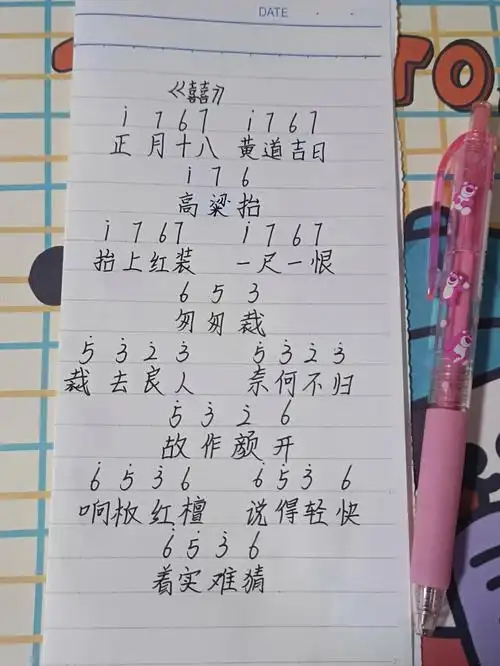 DATE
TO
《囍》
i 7 6 7 i 7 6 7
正月十八 黄道吉日
i 7 6
高粱抬
i 7 6 7 i 7 6 7
抬上红装 一尺一恨
6 5 3
匆匆裁
5̇ 3̇ 2̇ 3̇ 5̇ 3̇ 2̇ 3̇
裁去良人 奈何不归
5̇ 3̇ 2̇ 6
故作颜开
6̇ 5̇ 3̇ 6 6̇ 5̇ 3̇ 6
响板红檀 说得轻快
6̇ 5̇ 3̇ 6
着实难猜